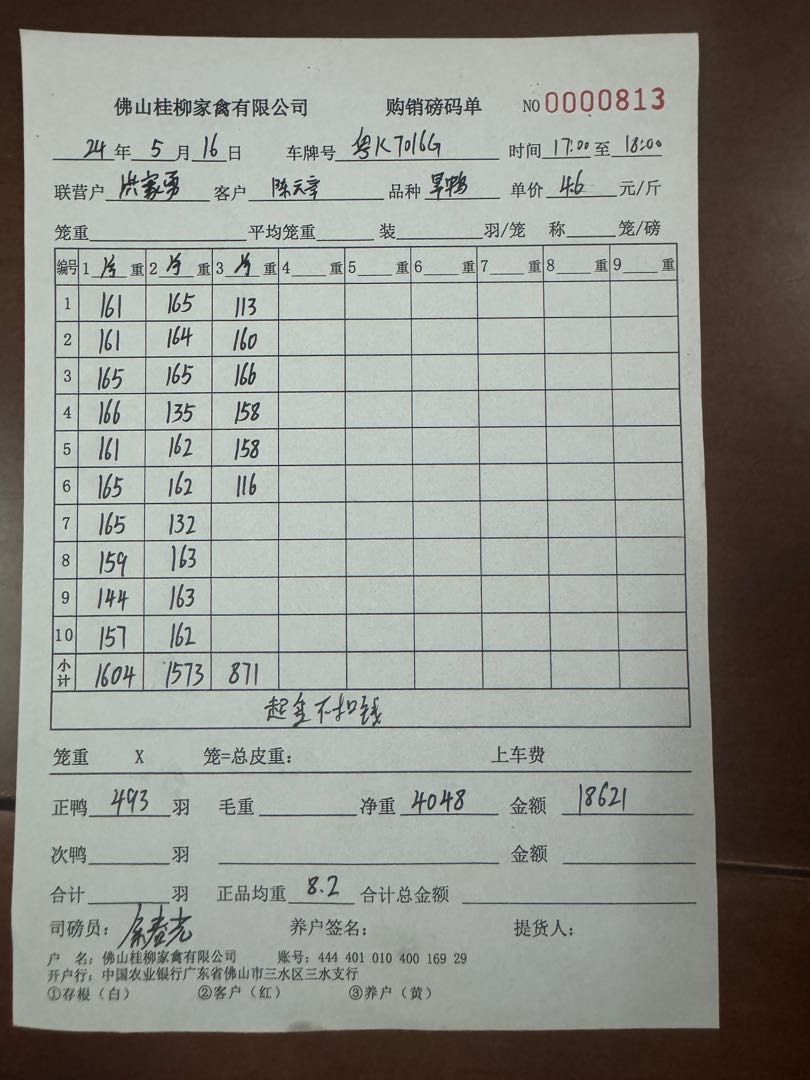 佛山桂柳家禽有限公司 购销磅码单 NO 0000813
24 年 5 月 16 日 车牌号 粤K7016G 时间 17:00 至 18:00
联营户 洪家勇 客户 品种 旱鸭 单价 4.6 元/斤
笼重 平均笼重 装 羽/笼 称 笼/磅
编号 1 重 2 重 3 重 4 重 5 重 6 重 7 重 8 重 9 重
1 161 165 113
2 161 164 160
3 165 165 166
4 166 135 158
5 161 162 158
6 165 162 116
7 165 132
8 159 163
9 144 163
10 157 162
小计 1604 1573 871
不扣钱
笼重 X 笼=总皮重： 上车费
正鸭 493 羽 毛重 净重 4048 金额 18621
次鸭 羽 金额
合计 羽 正品均重 8.2 合计总金额
司磅员： 养户签名： 提货人：
户 名：佛山桂柳家禽有限公司 账号：444 401 010 400 169 29
开户行：中国农业银行广东省佛山市三水区三水支行
①存根（白） ②客户（红） ③养户（黄）